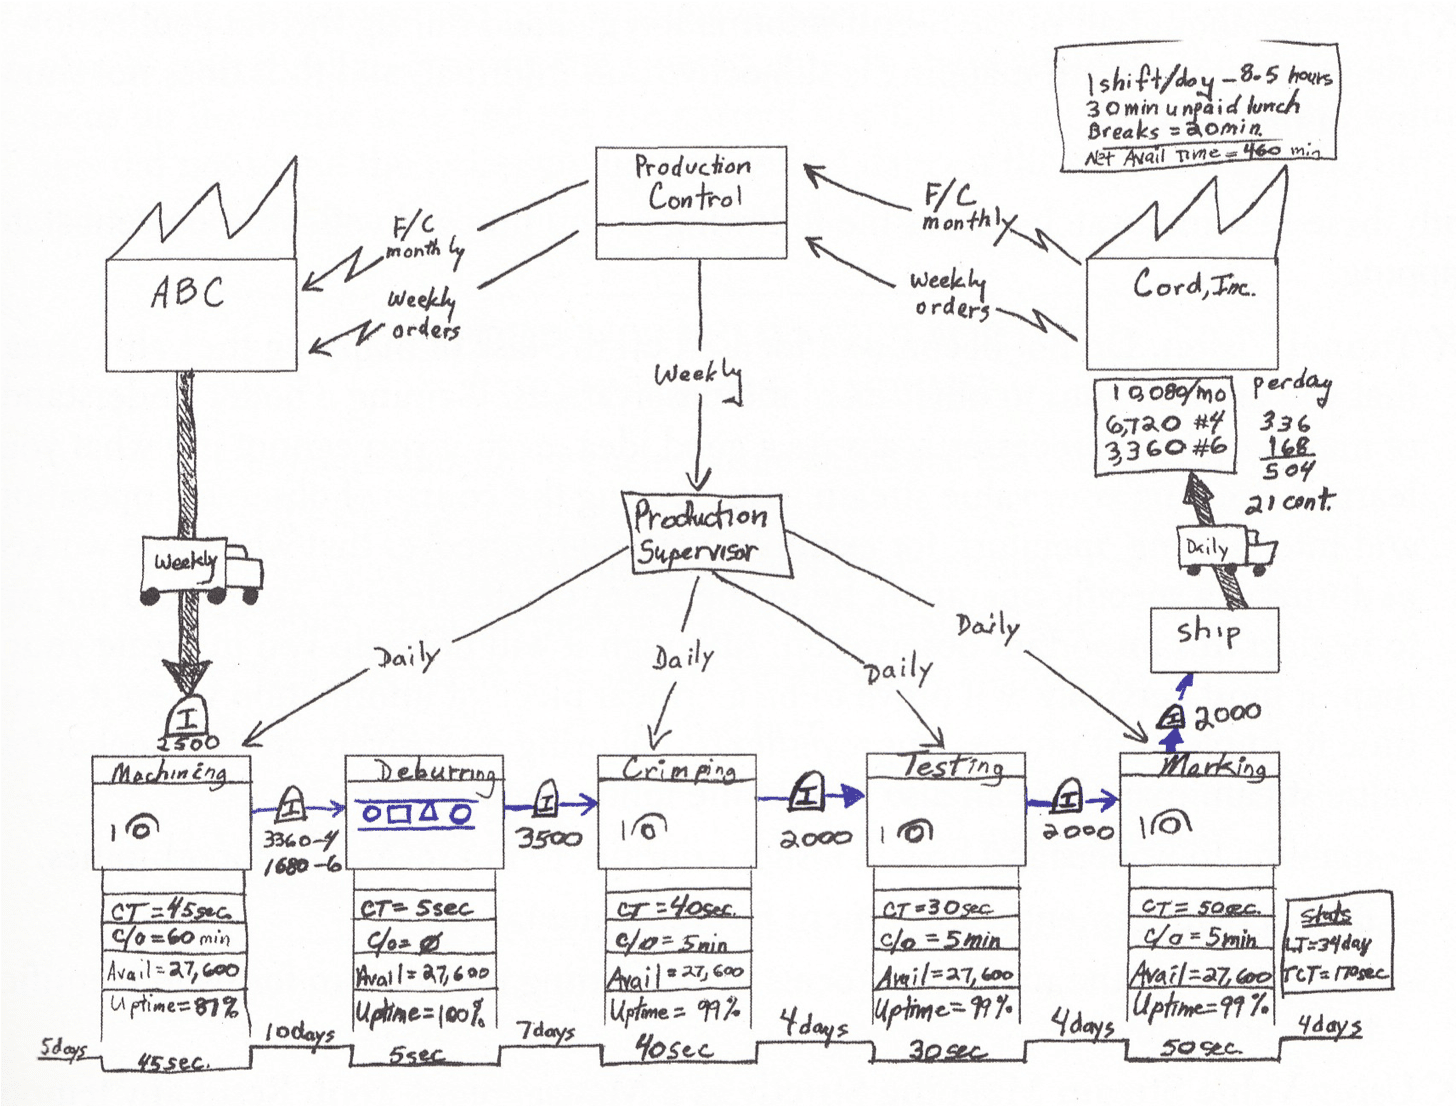 1 shift/day - 8.5 hours
30 min unpaid lunch
Breaks = 20 min
Net Avail Time = 460 min
Production
Control
F/C
monthly
Weekly
orders
F/C
monthly
Weekly
orders
ABC
Cord, Inc.
10,080/mo
6,720 #4
3,360 #6
per day
336
168
504
21 cont.
Weekly
Production
Supervisor
Weekly
Daily
ship
Daily
Daily
Daily
Daily
I
2500
I
2000
Machining
1
I
3360-4
1680-6
Deburring
I
3500
Crimping
1
I
2000
Testing
1
I
2000
Marking
1
CT = 45 sec.
C/O = 60 min
Avail = 27,600
Uptime = 87%
CT = 5 sec
C/O = Ø
Avail = 27,600
Uptime = 100%
CT = 40 sec.
C/O = 5 min
Avail = 27,600
Uptime = 99%
CT = 30 sec
C/O = 5 min
Avail = 27,600
Uptime = 99%
CT = 50 sec.
C/O = 5 min
Avail = 27,600
Uptime = 99%
Stats
LT = 34 day
TCT = 170 sec
5 days
45 sec.
10 days
5 sec
7 days
40 sec
4 days
30 sec
4 days
50 sec.
4 days